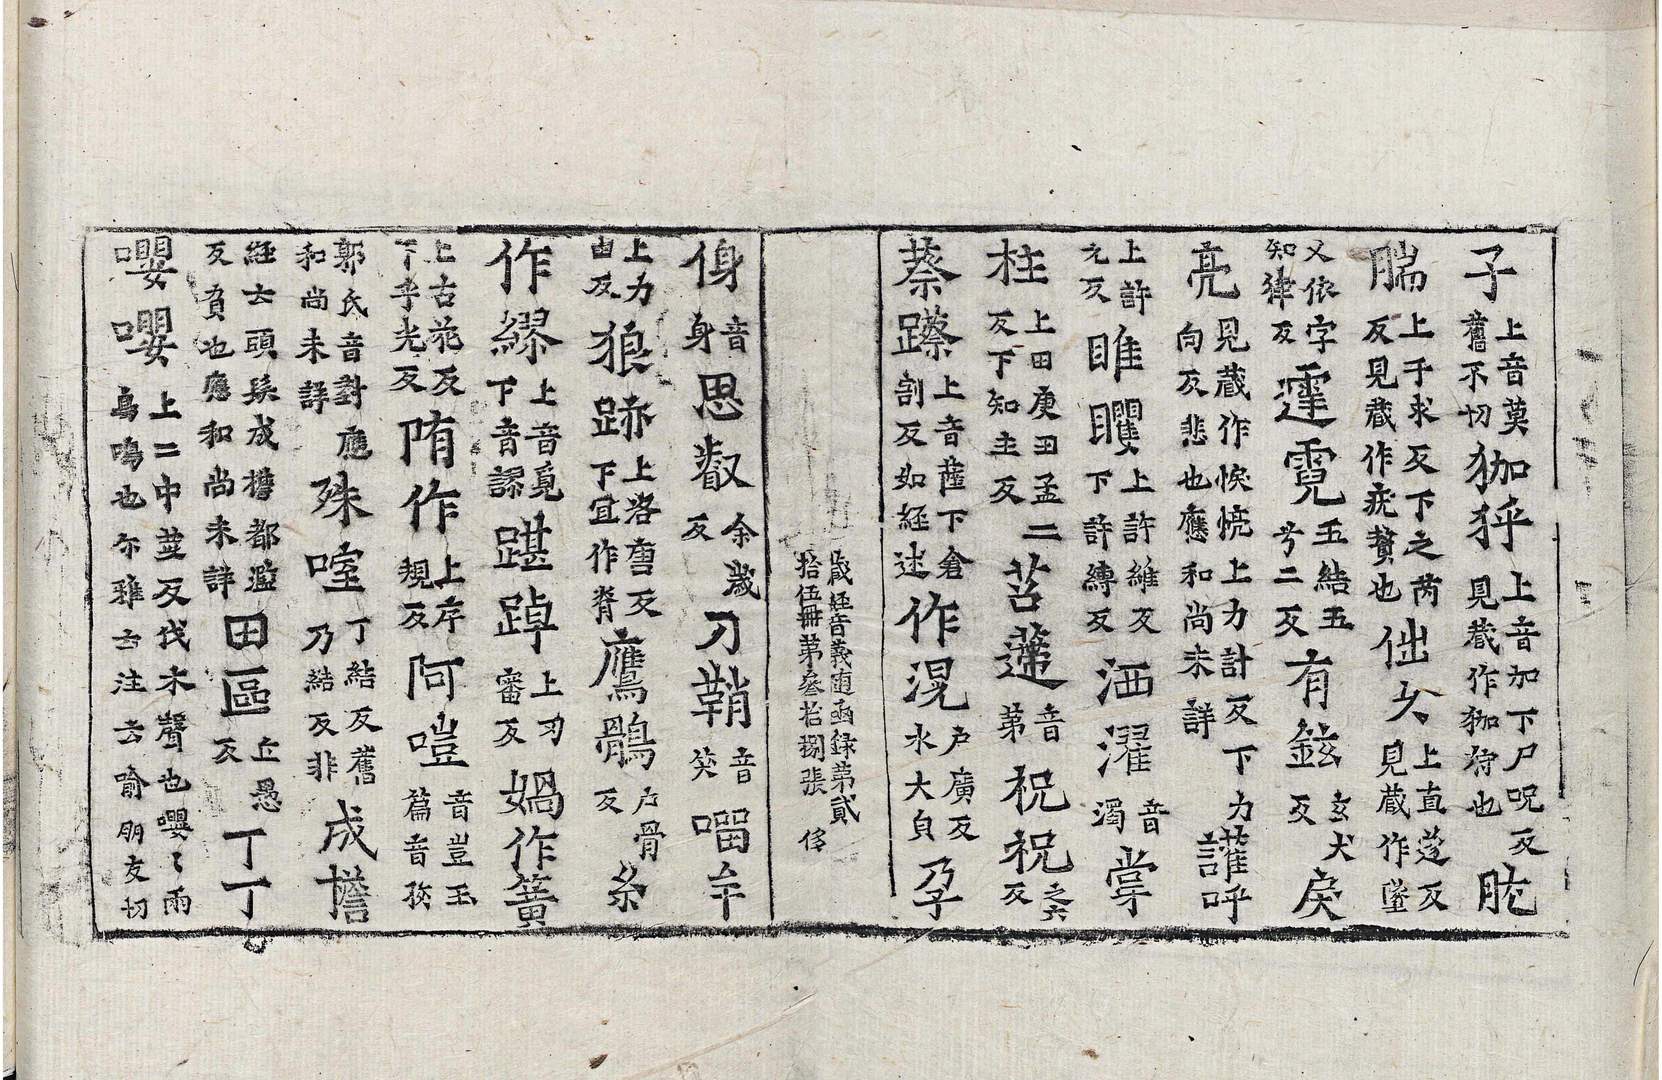 子上音莫舊不切㹢㹱上音加下尸呪反見藏作㹢狩也肬
腨上于求反下之芮反見藏作疣贅也倇夨上直蓬反見藏作墜
又依字知葎反霔霓五結五兮二反有鉉玄犬反戾
亮見藏作悷㤺上力計反下力向反悲也應和尚未詳讙呼
上許元反睢矍上許維反下許縛反洒濯音濁掌
柱上田庚田孟二反下知主反苕䔶音第祝祝之六反
蔡䠕上音薩下倉割反如經述作滉户廣反水大皃孕
藏經音義隨函録第貳拾伍冊第叄拾捌張 侈
㑗音身思叡余歲反刀鞘音笑㗰牟
上力由反狼跡上洛唐反下宜作脊鷹鶻户骨反糸
作繆上音覓下音謬踸踔上刃審反媧作簧
上古花反下乎光反隋作上序規反阿噔音豈玉篇音㱾
郭氏音對應和尚未詳殊㗌丁結反舊乃結反非成檐
經云頭髮成檐都濫反負也應和尚未詳田區丘愚反丁丁
嚶嚶上二中莖反伐木聲也嚶〻兩鳥鳴也尒雅云注云喻朋友切